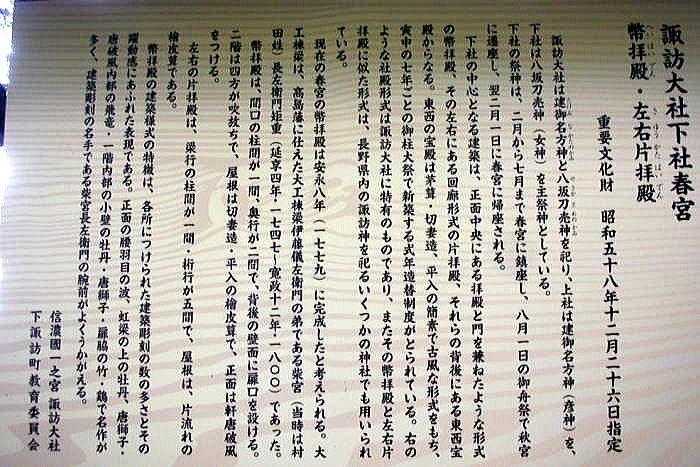 諏訪大社下社春宮
へいはいでん　さゆうかたはいでん
幣拝殿・左右片拝殿
重要文化財　昭和五十八年十二月二十六日指定
諏訪大社は建御名方神と八坂刀売神を祀り、上社は建御名方神（彦神）を、
下社は八坂刀売神（女神）を主祭神としている。
下社の祭神は、二月から七月まで春宮に鎮座し、八月一日の御舟祭で秋宮
に遷座し、翌二月一日に春宮に帰座される。
下社の中心となる建築は、正面中央にある拝殿と門を兼ねたような形式
の幣拝殿、その左右にある回廊形式の片拝殿、それらの背後にある東西宝
殿からなる。東西の宝殿は茅葺・切妻造、平入の簡素で古風な形式をもち、
寅申の七年ごとの御柱大祭で新築する式年造替制度がとられている。右の
ような社殿形式は諏訪大社に特有のものであり、またその幣拝殿と左右片
拝殿に似た形式は、長野県内の諏訪神を祀るいくつかの神社でも用いられ
ている。
現在の春宮の幣拝殿は安永八年（一七七九）に完成したと考えられる。大
工棟梁は、高島藩に仕えた大工棟梁伊藤儀左衛門の弟である柴宮（当時は村
田姓）長左衛門矩重（延享四年・一七四七～寛政十二年・一八〇〇）であった。
幣拝殿は、間口の柱間が一間、奥行が二間で、背後の壁面に扉口を設ける。
二階は四方が吹放ちで、屋根は切妻造・平入の檜皮葺で、正面は軒唐破風
をつける。
左右の片拝殿は、梁行の柱間が一間・桁行が五間で、屋根は、片流れの
檜皮葺である。
幣拝殿の建築様式の特徴は、各所につけられた建築彫刻の数の多さとその
躍動感にあふれた表現である。正面の腰羽目の波、虹梁の上の牡丹、唐獅子・
唐破風内部の飛竜・一階内部の小壁の牡丹・唐獅子・扉脇の竹・鶏で名作が
多く、建築彫刻の名手である柴宮長左衛門の腕前がよくうかがえる。
信濃國一之宮　諏訪大社
下諏訪町教育委員会